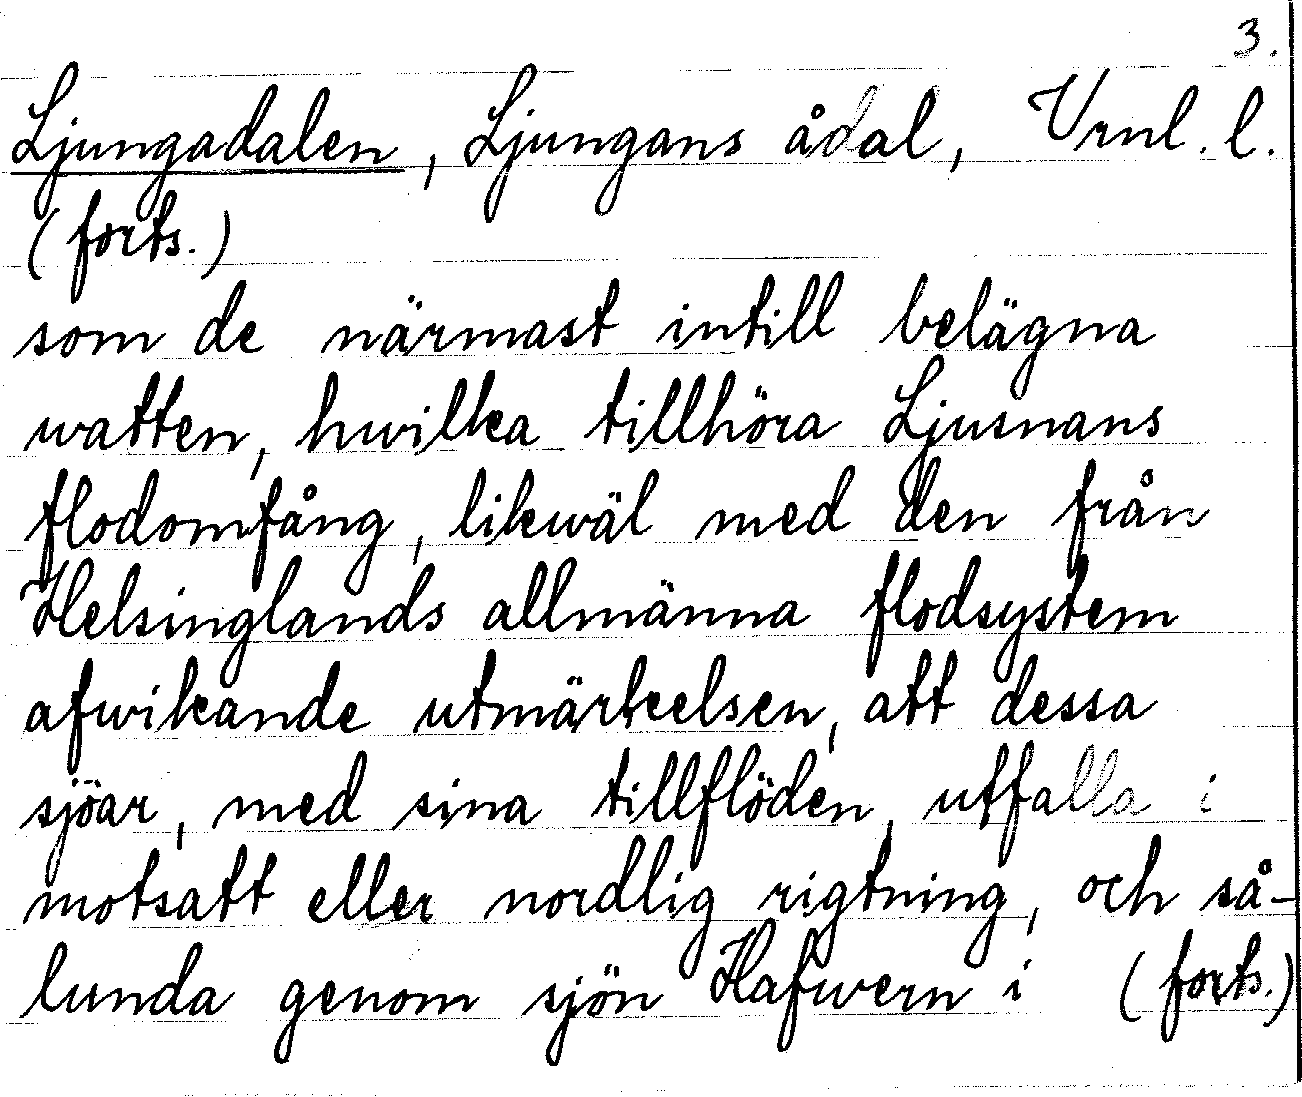 3.
Ljungadalen, Ljungans ådal, Vrnl. l.
(forts.)
som de närmast intill belägna
watten, hwilka tillhöra Ljusnans
flodomfång, likwäl med den från
Helsinglands allmänna flodsystem
afwikande utmärkelsen, att dessa
sjöar, med sina tillflöden, utfalla i
motsatt eller nordlig rigtning, och så-
lunda genom sjön Hafwern i (forts.)